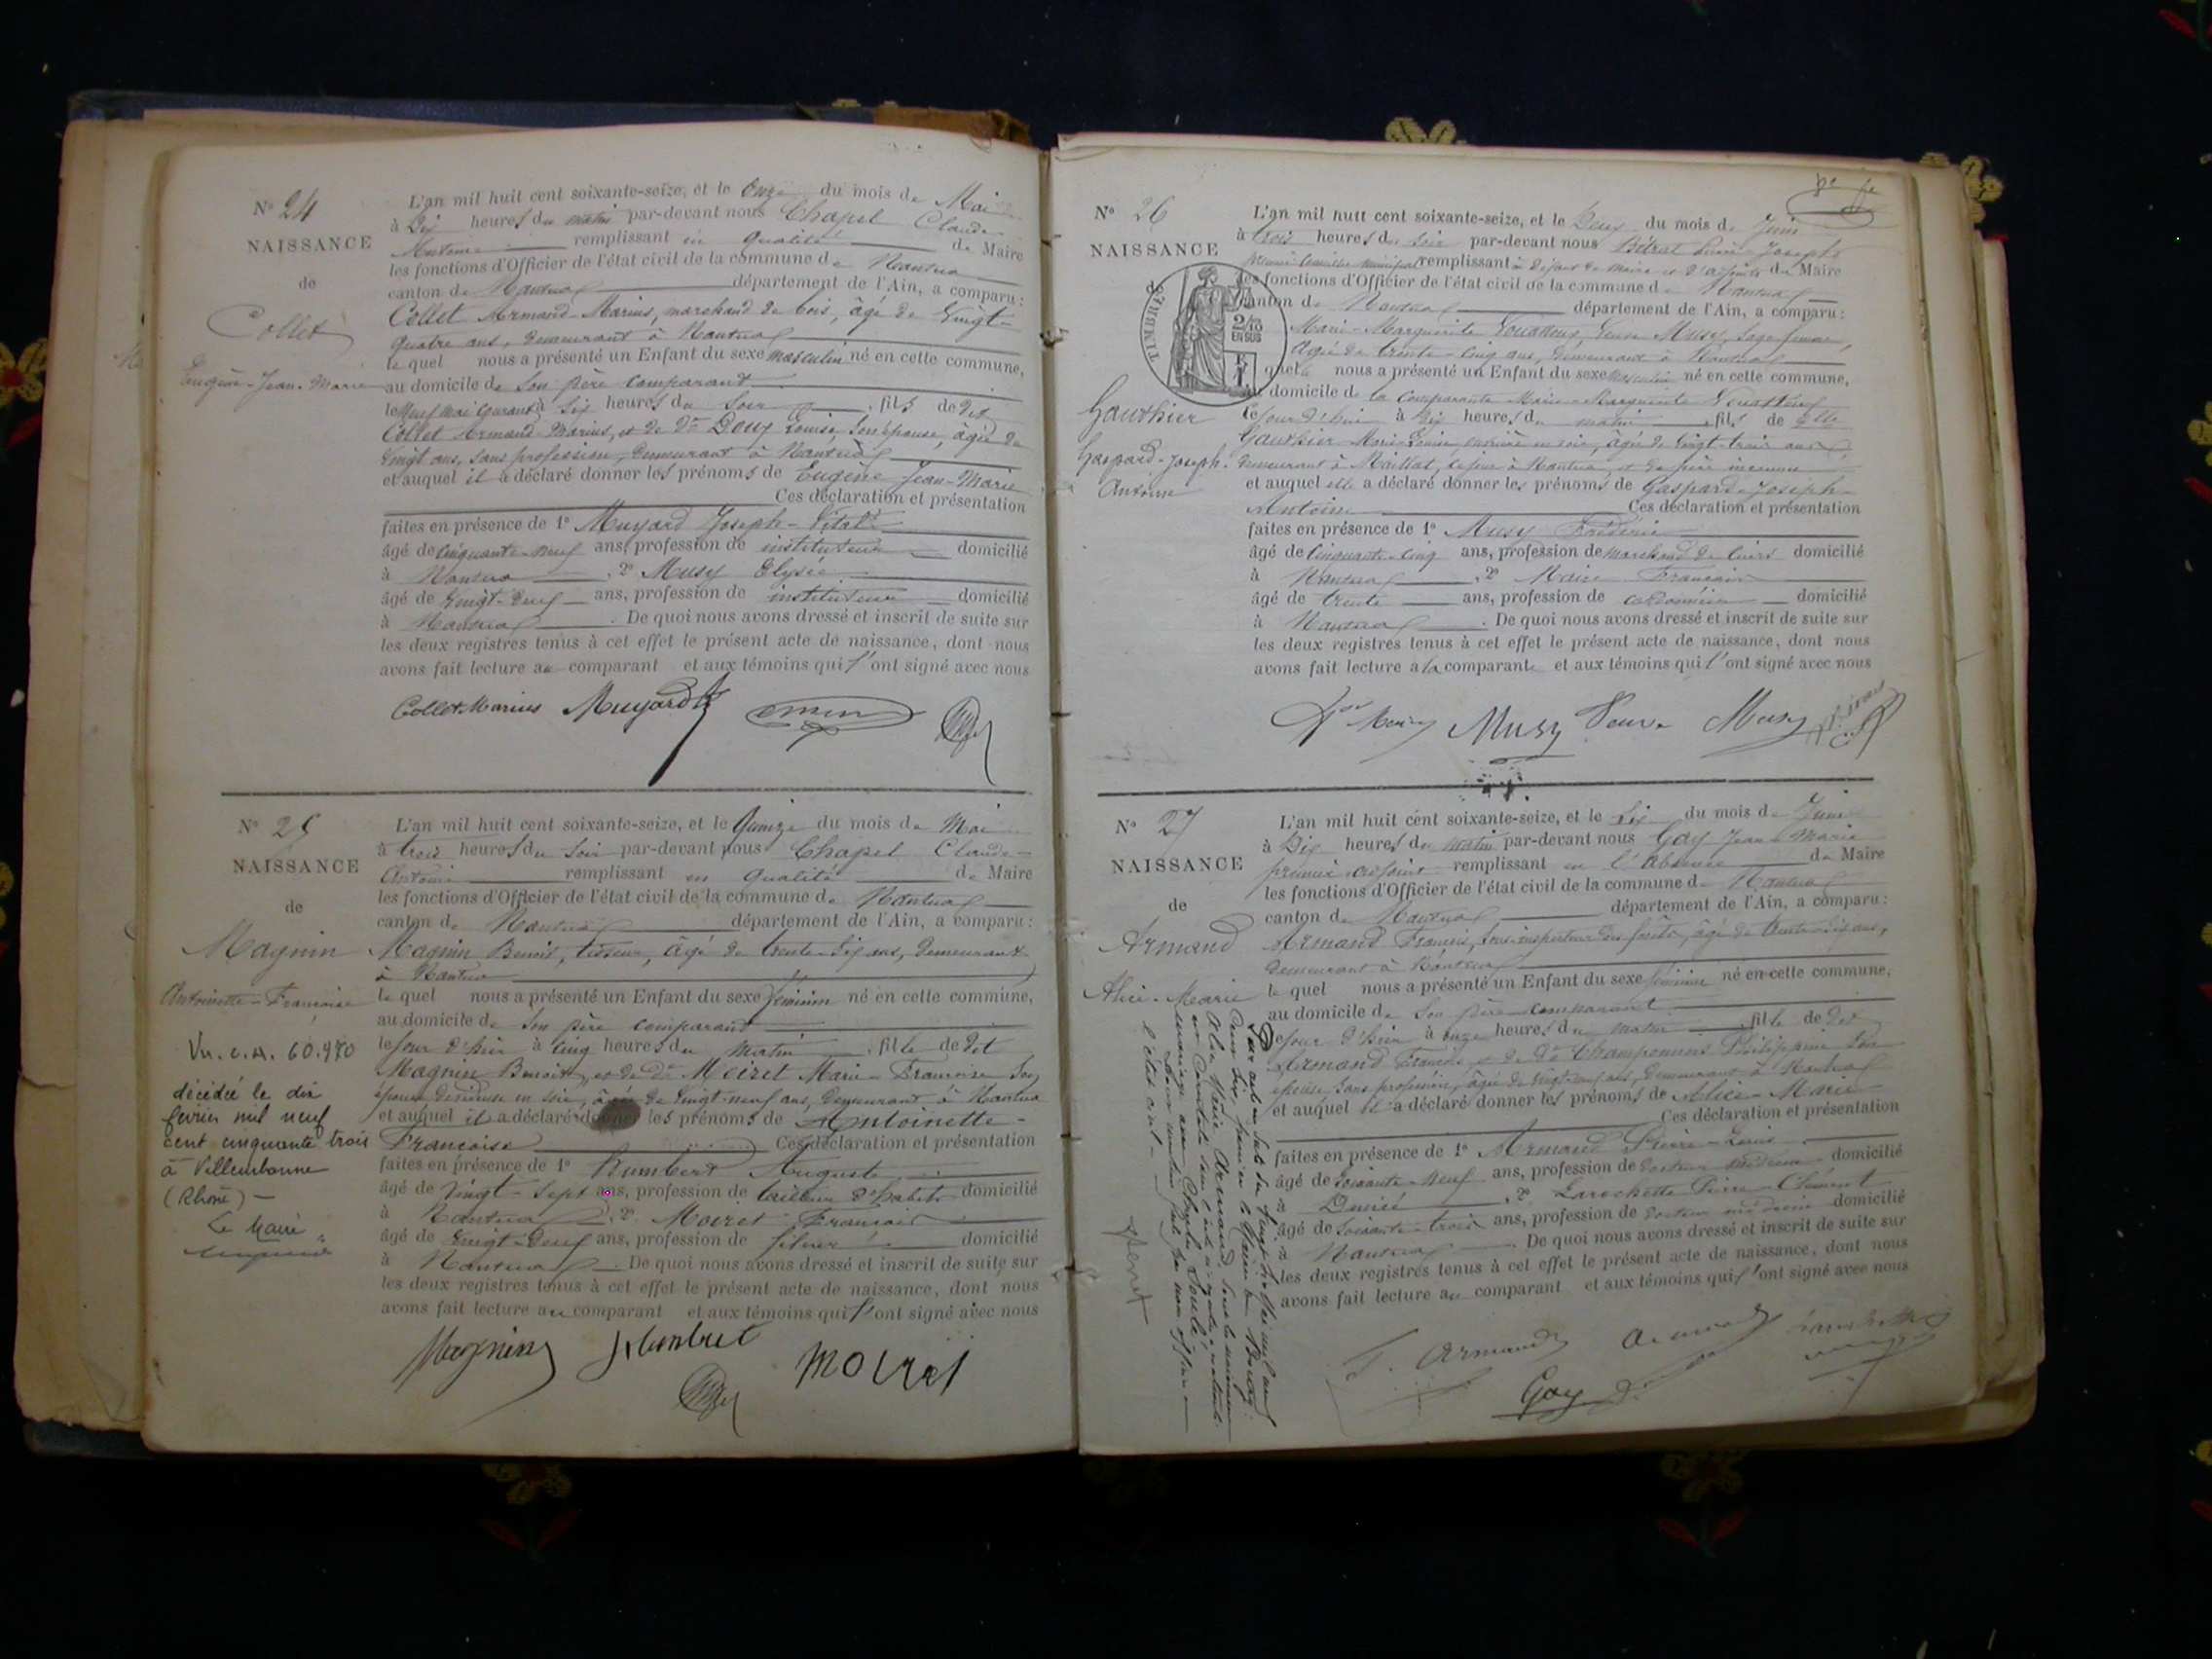 N° 24
NAISSANCE
de
Collet
Eugène-Jean-Marie
L'an mil huit cent soixante-seize, et le Onze du mois de Mai
à Dix heures du matin par-devant nous Chapel Claude
Antoine remplissant en qualité de Maire
les fonctions d'Officier de l'état civil de la commune de Nantua
canton de Nantua département de l'Ain, a comparu :
Collet Armand-Marius, marchand de bois, âgé de Vingt-
quatre ans, demeurant à Nantua
le quel nous a présenté un Enfant du sexe masculin né en cette commune,
au domicile de Son père comparant
le Neuf mai courant à Six heures du Soir , fils de dit
Collet Armand-Marius, et de De Douy Louise Son épouse, âgée de
Vingt ans, sans profession, demeurant à Nantua
et auquel il a déclaré donner les prénoms de Eugène Jean-Marie
Ces déclaration et présentation
faites en présence de 1° Muyard Joseph-Vital
âgé de Cinquante-neuf ans, profession de instituteur domicilié
à Nantua , 2° Musy Elysée
âgé de Vingt-neuf ans, profession de instituteur domicilié
à Nantua . De quoi nous avons dressé et inscrit de suite sur
les deux registres tenus à cet effet le présent acte de naissance, dont nous
avons fait lecture au comparant et aux témoins qui l'ont signé avec nous
Collet Marius Muyard
N° 25
NAISSANCE
de
Magnin
Antoinette-Françoise
décédée le dix
février mil neuf
cent cinquante trois
à Villeurbanne
(Rhône) —
Le Maire
L'an mil huit cent soixante-seize, et le Quinze du mois de Mai
à trois heures du Soir par-devant nous Chapel Claude-
Antoine remplissant en qualité de Maire
les fonctions d'Officier de l'état civil de la commune de Nantua
canton de Nantua département de l'Ain, a comparu :
Magnin Benoit, tisseur, âgé de trente-six ans, demeurant
à Nantua
le quel nous a présenté un Enfant du sexe féminin né en cette commune,
au domicile de Son père comparant
le jour d'hier à Cinq heures du matin , fille de dit
Magnin Benoit, et de De Moiret Marie-Françoise Son
épouse en soie, âgée de Vingt-neuf ans, demeurant à Nantua
et auquel il a déclaré donner les prénoms de Antoinette-
Françoise Ces déclaration et présentation
faites en présence de 1° Humbert Auguste
âgé de Vingt-sept ans, profession de tailleur d'habits domicilié
à Nantua , 2° Moiret François
âgé de Vingt-neuf ans, profession de fileur domicilié
à Nantua . De quoi nous avons dressé et inscrit de suite sur
les deux registres tenus à cet effet le présent acte de naissance, dont nous
avons fait lecture au comparant et aux témoins qui l'ont signé avec nous
Magnin Humbert Moiret
N° 26
NAISSANCE
TIMBRES
2/10
EN SUS
Gauthier
Gaspard-Joseph-
Antoine
L'an mil huit cent soixante-seize, et le Deux du mois de Juin
à trois heures du Soir par-devant nous Joseph
premier Conseiller municipal remplissant à défaut de Maire et d'adjoints de Maire
les fonctions d'Officier de l'état civil de la commune de Nantua
canton de Nantua département de l'Ain, a comparu :
Marie-Marguerite Veuve Musy, Sage femme,
âgée de trente-cinq ans, demeurant à Nantua
quelle nous a présenté un Enfant du sexe masculin né en cette commune,
au domicile de la comparante Marie-Marguerite
le jour d'hui à Dix heures du matin , fils de Elle
Gauthier Marie-Louise, ouvrière en soie, âgée de Vingt-trois ans
demeurant à Maillat, à Nantua, et de père inconnu
et auquel elle a déclaré donner les prénoms de Gaspard-Joseph-
Antoine Ces déclaration et présentation
faites en présence de 1° Musy Frédéric
âgé de Cinquante-cinq ans, profession de marchand de cuirs domicilié
à Nantua , 2° Maire François
âgé de trente ans, profession de cordonnier domicilié
à Nantua . De quoi nous avons dressé et inscrit de suite sur
les deux registres tenus à cet effet le présent acte de naissance, dont nous
avons fait lecture à la comparante et aux témoins qui l'ont signé avec nous
Musy Veuve Musy
N° 27
NAISSANCE
de
Armand
Alice-Marie
L'an mil huit cent soixante-seize, et le Six du mois de Juin
à Dix heures du matin par-devant nous Gay Jean-Marie
premier adjoint remplissant en l'absence de Maire
les fonctions d'Officier de l'état civil de la commune de Nantua
canton de Nantua département de l'Ain, a comparu :
Armand François, Sous-inspecteur des forêts, âgé de trente-six ans,
demeurant à Nantua
le quel nous a présenté un Enfant du sexe féminin né en cette commune,
au domicile de Son père comparant
le jour d'hier à onze heures du matin , fille de dit
Armand François et de De Philippine Son
épouse, Sans profession, âgée de Vingt-neuf ans, demeurant à Nantua
et auquel il a déclaré donner les prénoms de Alice-Marie
Ces déclaration et présentation
faites en présence de 1° Armand Pierre-Louis
âgé de Soixante-neuf ans, profession de docteur médecin domicilié
à , 2° Larochette Pierre-Clément
âgé de Soixante-trois ans, profession de docteur médecin domicilié
à Nantua . De quoi nous avons dressé et inscrit de suite sur
les deux registres tenus à cet effet le présent acte de naissance, dont nous
avons fait lecture au comparant et aux témoins qui l'ont signé avec nous
F. Armand
Gay